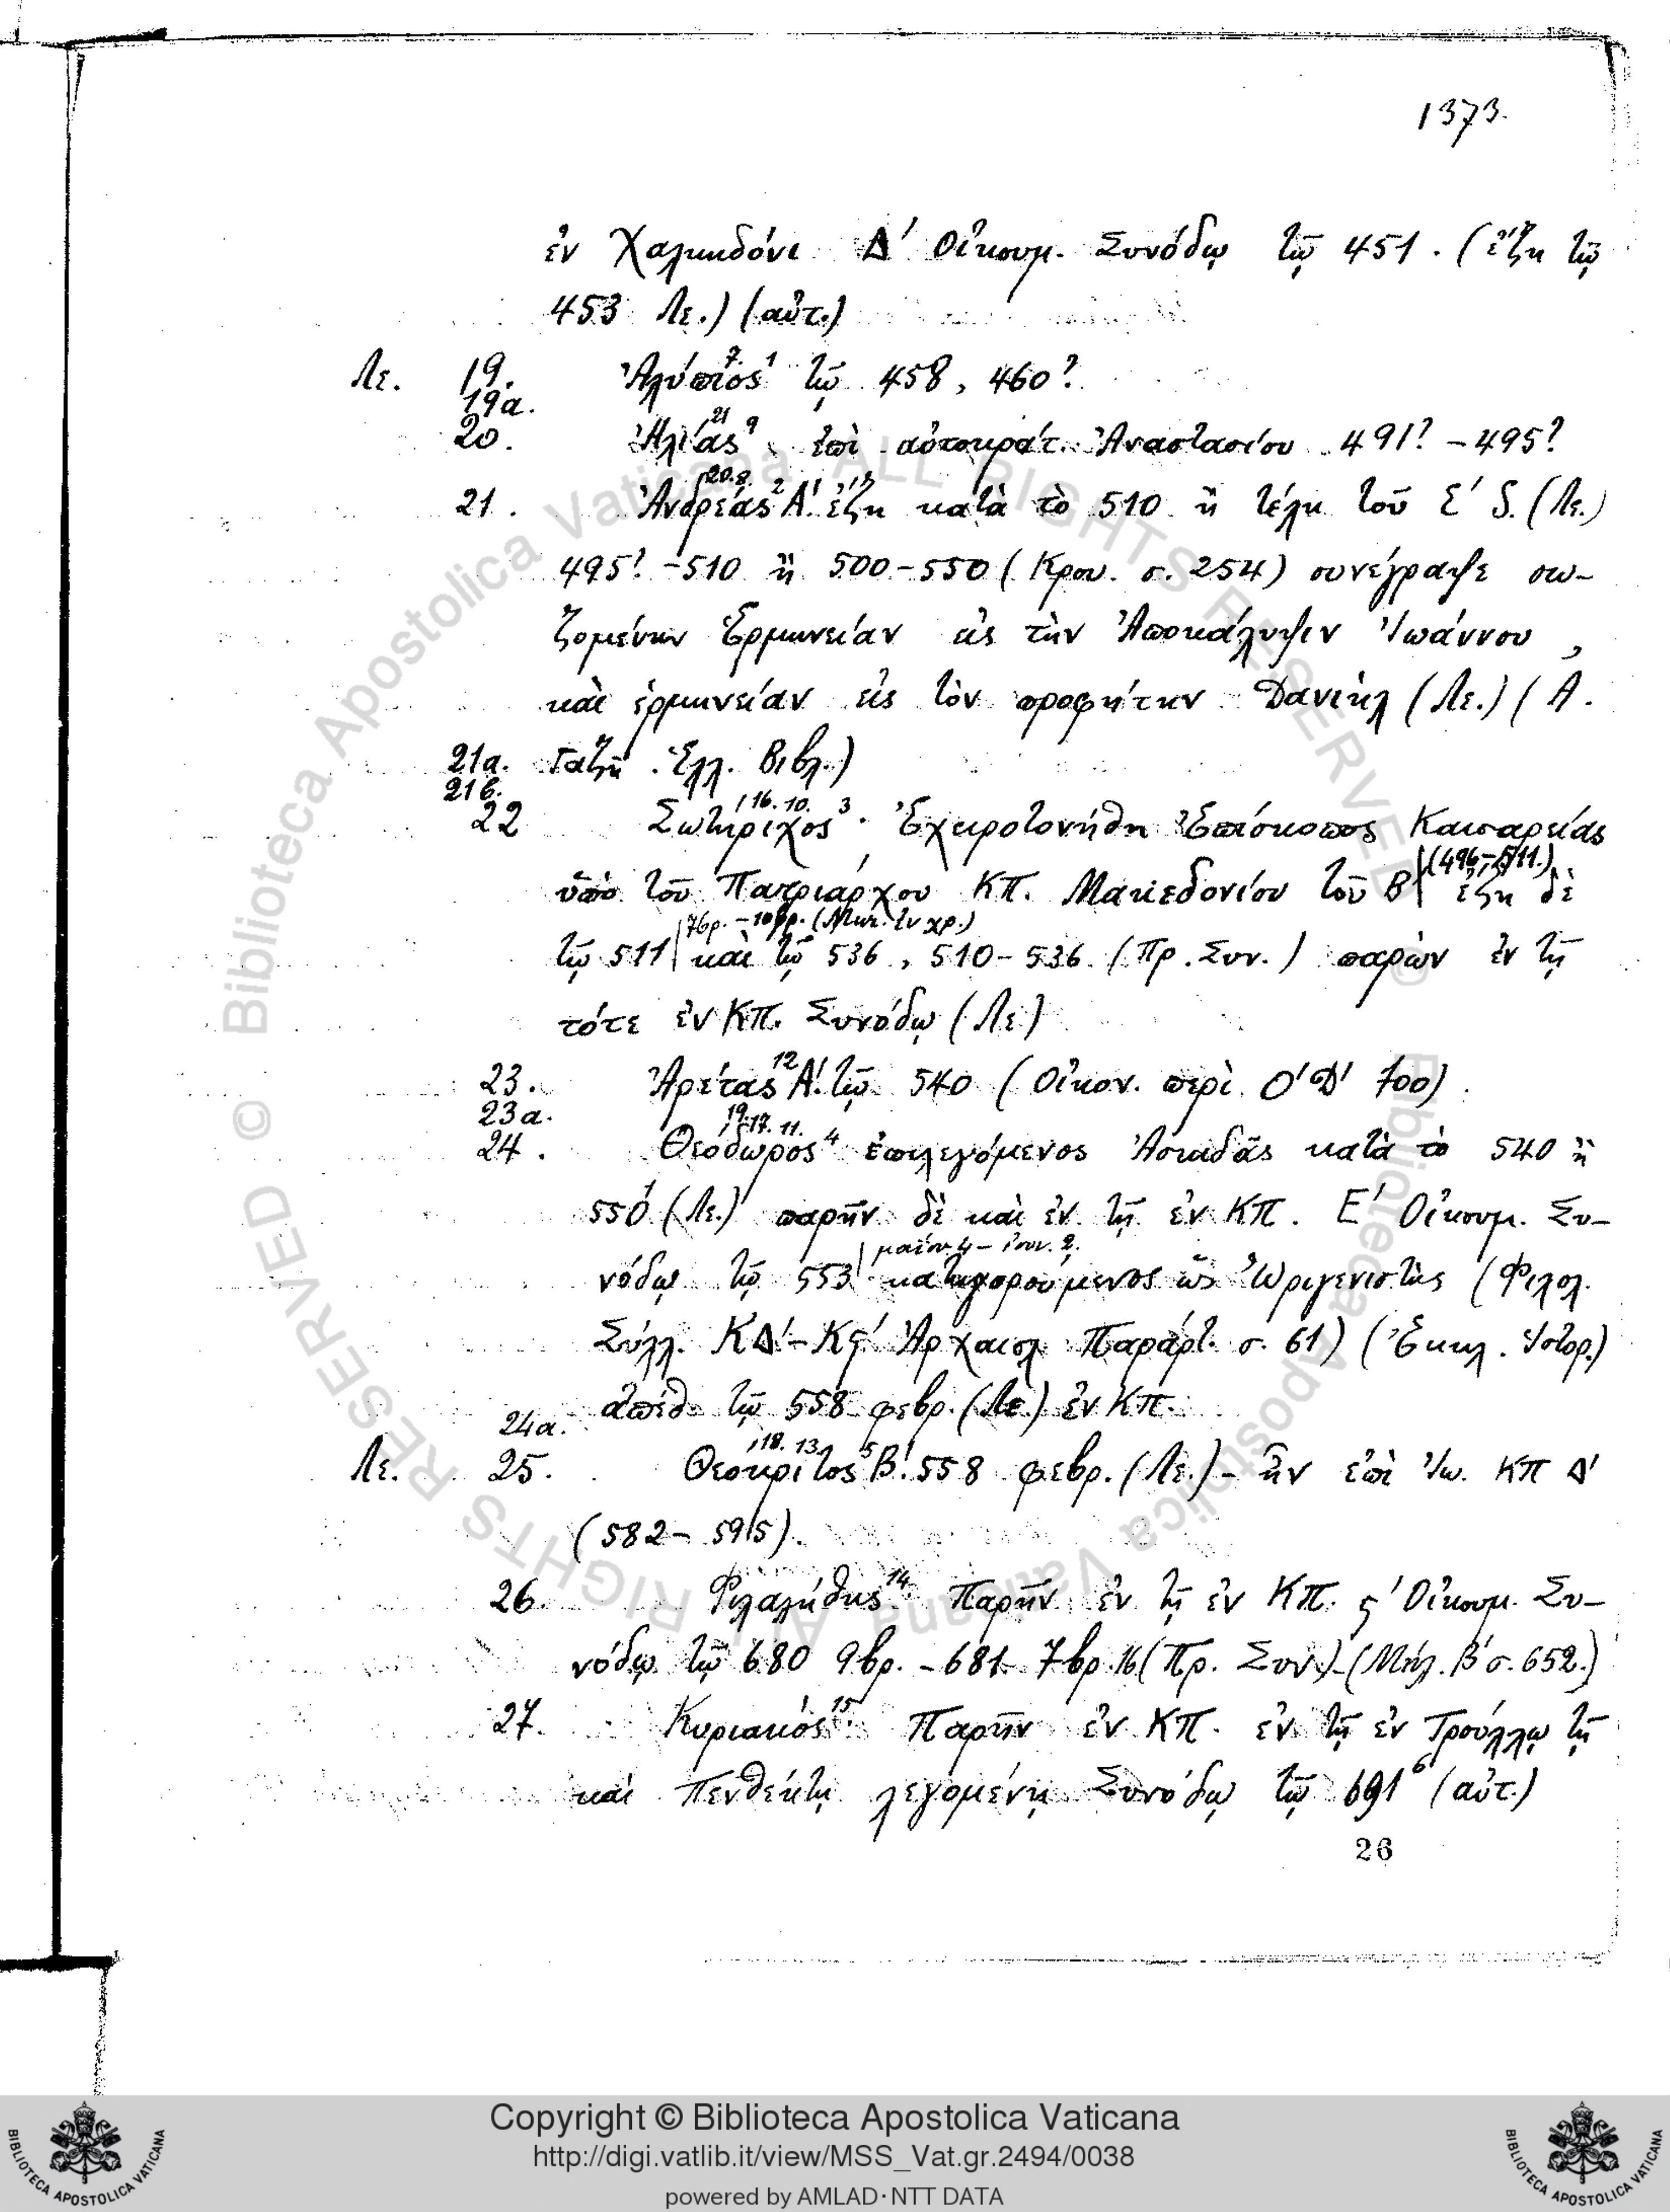 1373.
ἐν Χαλκηδόνι Δ' Οἰκουμ. Συνόδῳ τῷ 451. (ἔζη τῷ
453 Λε.) (αὐτ.)
Λε. 19. Ἀλύπιος 7. 1 τῷ 458, 460?
19α.
20. Ἠλίας 21 9 ἐπὶ αὐτοκράτ. Ἀναστασίου 491? - 495?
21. Ἀνδρέας 20.8. 2 Α'. ἔζη κατὰ τὸ 510 ἢ τέλη τοῦ Ε' δ. (Λε.)
495? - 510 ἢ 500-550 (Κρου. σ. 254) συνέγραψε σω-
ζομένην Ἑρμηνείαν εἰς τὴν Ἀποκάλυψιν Ἰωάννου,
καὶ ἑρμηνείαν εἰς τὸν προφήτην Δανιὴλ (Λε.) (Α.
21α. Γαζῆ. Ἑλλ. Βιβλ.)
21β.
22 Σωτήριχος 16. 10. 3. Ἐχειροτονήθη Ἐπίσκοπος Καισαρείας
ὑπὸ τοῦ Πατριάρχου ΚΠ. Μακεδονίου τοῦ Β' (496-511.) ἔζη δὲ
τῷ 511 καὶ τῷ 536, 510-536 (Πρ. Συν.) παρὼν ἐν τῇ
τότε ἐν ΚΠ. Συνόδῳ (Λε.)
23. Ἀρέτας 12 Α'. τῷ 540 (Οἰκον. περὶ Ο' Δ' 700).
23α.
24. Θεόδωρος 19.17. 11. 4 ἐπιλεγόμενος Ἀσκιδᾶς κατὰ τὸ 540 ἢ
550 (Λε.) παρῆν δὲ καὶ ἐν τῇ ἐν ΚΠ. Ε' Οἰκουμ. Συ-
νόδῳ τῷ 553 μαΐου 4 - Ἰουν. 2. κατηγορούμενος ὡς Ὠριγενιστὴς (Φιλολ.
Σύλλ. ΚΔ'-Κς' Ἀρχαιολ. Παράρτ. σ. 61) (Ἐκκλ. Ἱστορ.)
24α. ἀπέθ. τῷ 558 φεβρ. (Λε.) ἐν ΚΠ.
Λε. 25. Θεόκριτος 18. 13. 5 Β'. 558 φεβρ. (Λε.) - ἦν ἐπὶ Ἰω. ΚΠ Δ'
(582-595).
26. Φιλαλήθης 14. Παρῆν ἐν τῇ ἐν ΚΠ. ς' Οἰκουμ. Συ-
νόδῳ τῷ 680 9βρ. - 681 7βρ. 16 (Πρ. Συν.) (Μήλ. Β' σ. 652.)
27. Κυριακός 15. Παρῆν ἐν ΚΠ. ἐν τῇ ἐν Τρούλλῳ τῇ
καὶ Πενθέκτῃ λεγομένῃ Συνόδῳ τῷ 691 6 (αὐτ.)
26
© Biblioteca Apostolica Vaticana ALL RIGHTS RESERVED
© Biblioteca Apostolica Vaticana ALL RIGHTS RESERVED
Copyright © Biblioteca Apostolica Vaticana
http://digi.vatlib.it/view/MSS_Vat.gr.2494/0038
powered by AMLAD·NTT DATA
BIBLIOTECA APOSTOLICA VATICANA
BIBLIOTECA APOSTOLICA VATICANA